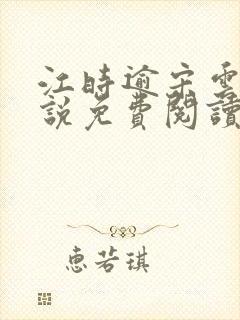 江時逾宋雲
說免費閱讀
惠若琪